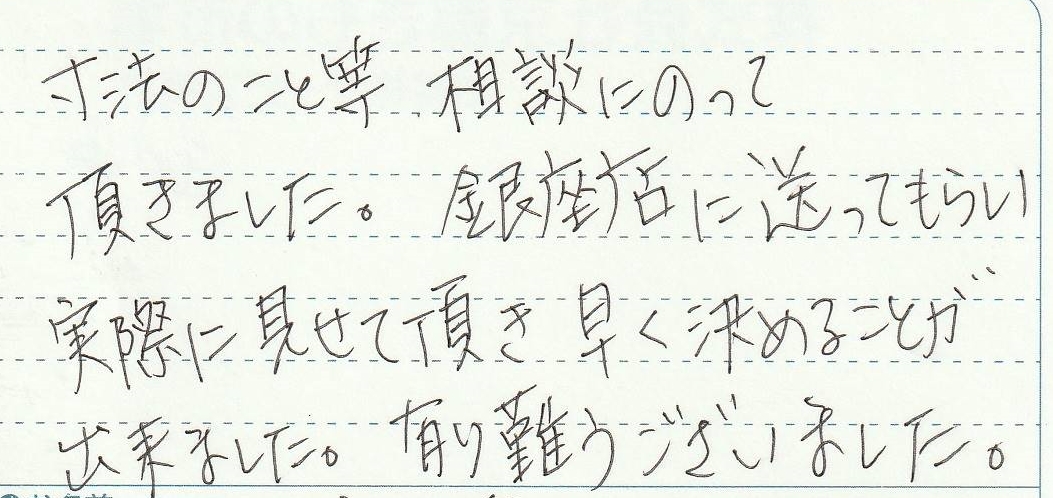 寸法のこと等 相談にのって
頂きました。 銀座店に送ってもらい
実際に見せて頂き 早く決めることが
出来ました。 有り難うございました。